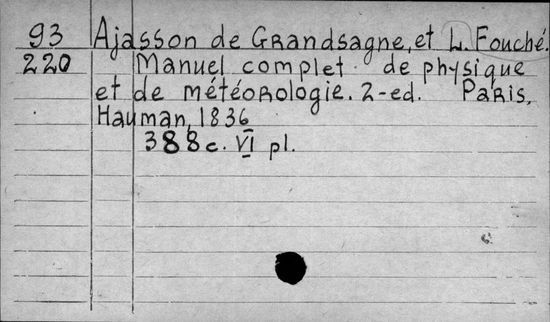 93 Ajasson de Grandsagne, et L. Fouché.
220 Manuel complet de physique
et de météorologie. 2-ed. Paris,
Hauman, 1836
388 c. VI pl.